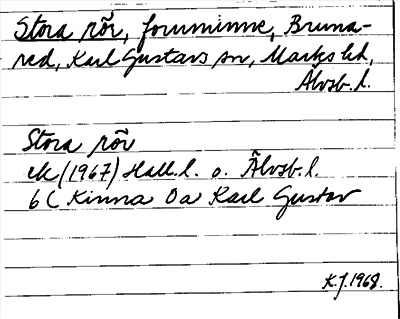 Stora rör, fornminne, Bruna-
red, Karl Gustavs sn, Marks hd,
Älvsb. l.
Stora rör
ek (1967) Hall. l. o. Älvsb. l.
6 C Kinna 0a Karl Gustav
K.J. 1968.